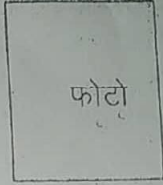 फोटो